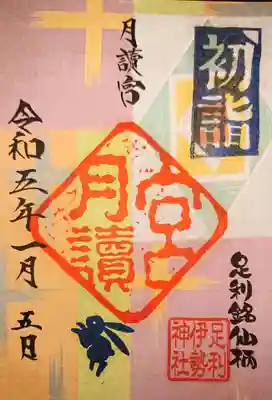 初詣
月讀宮
令和五年一月五日
月讀宮
足利銘仙柄
足利伊勢神社